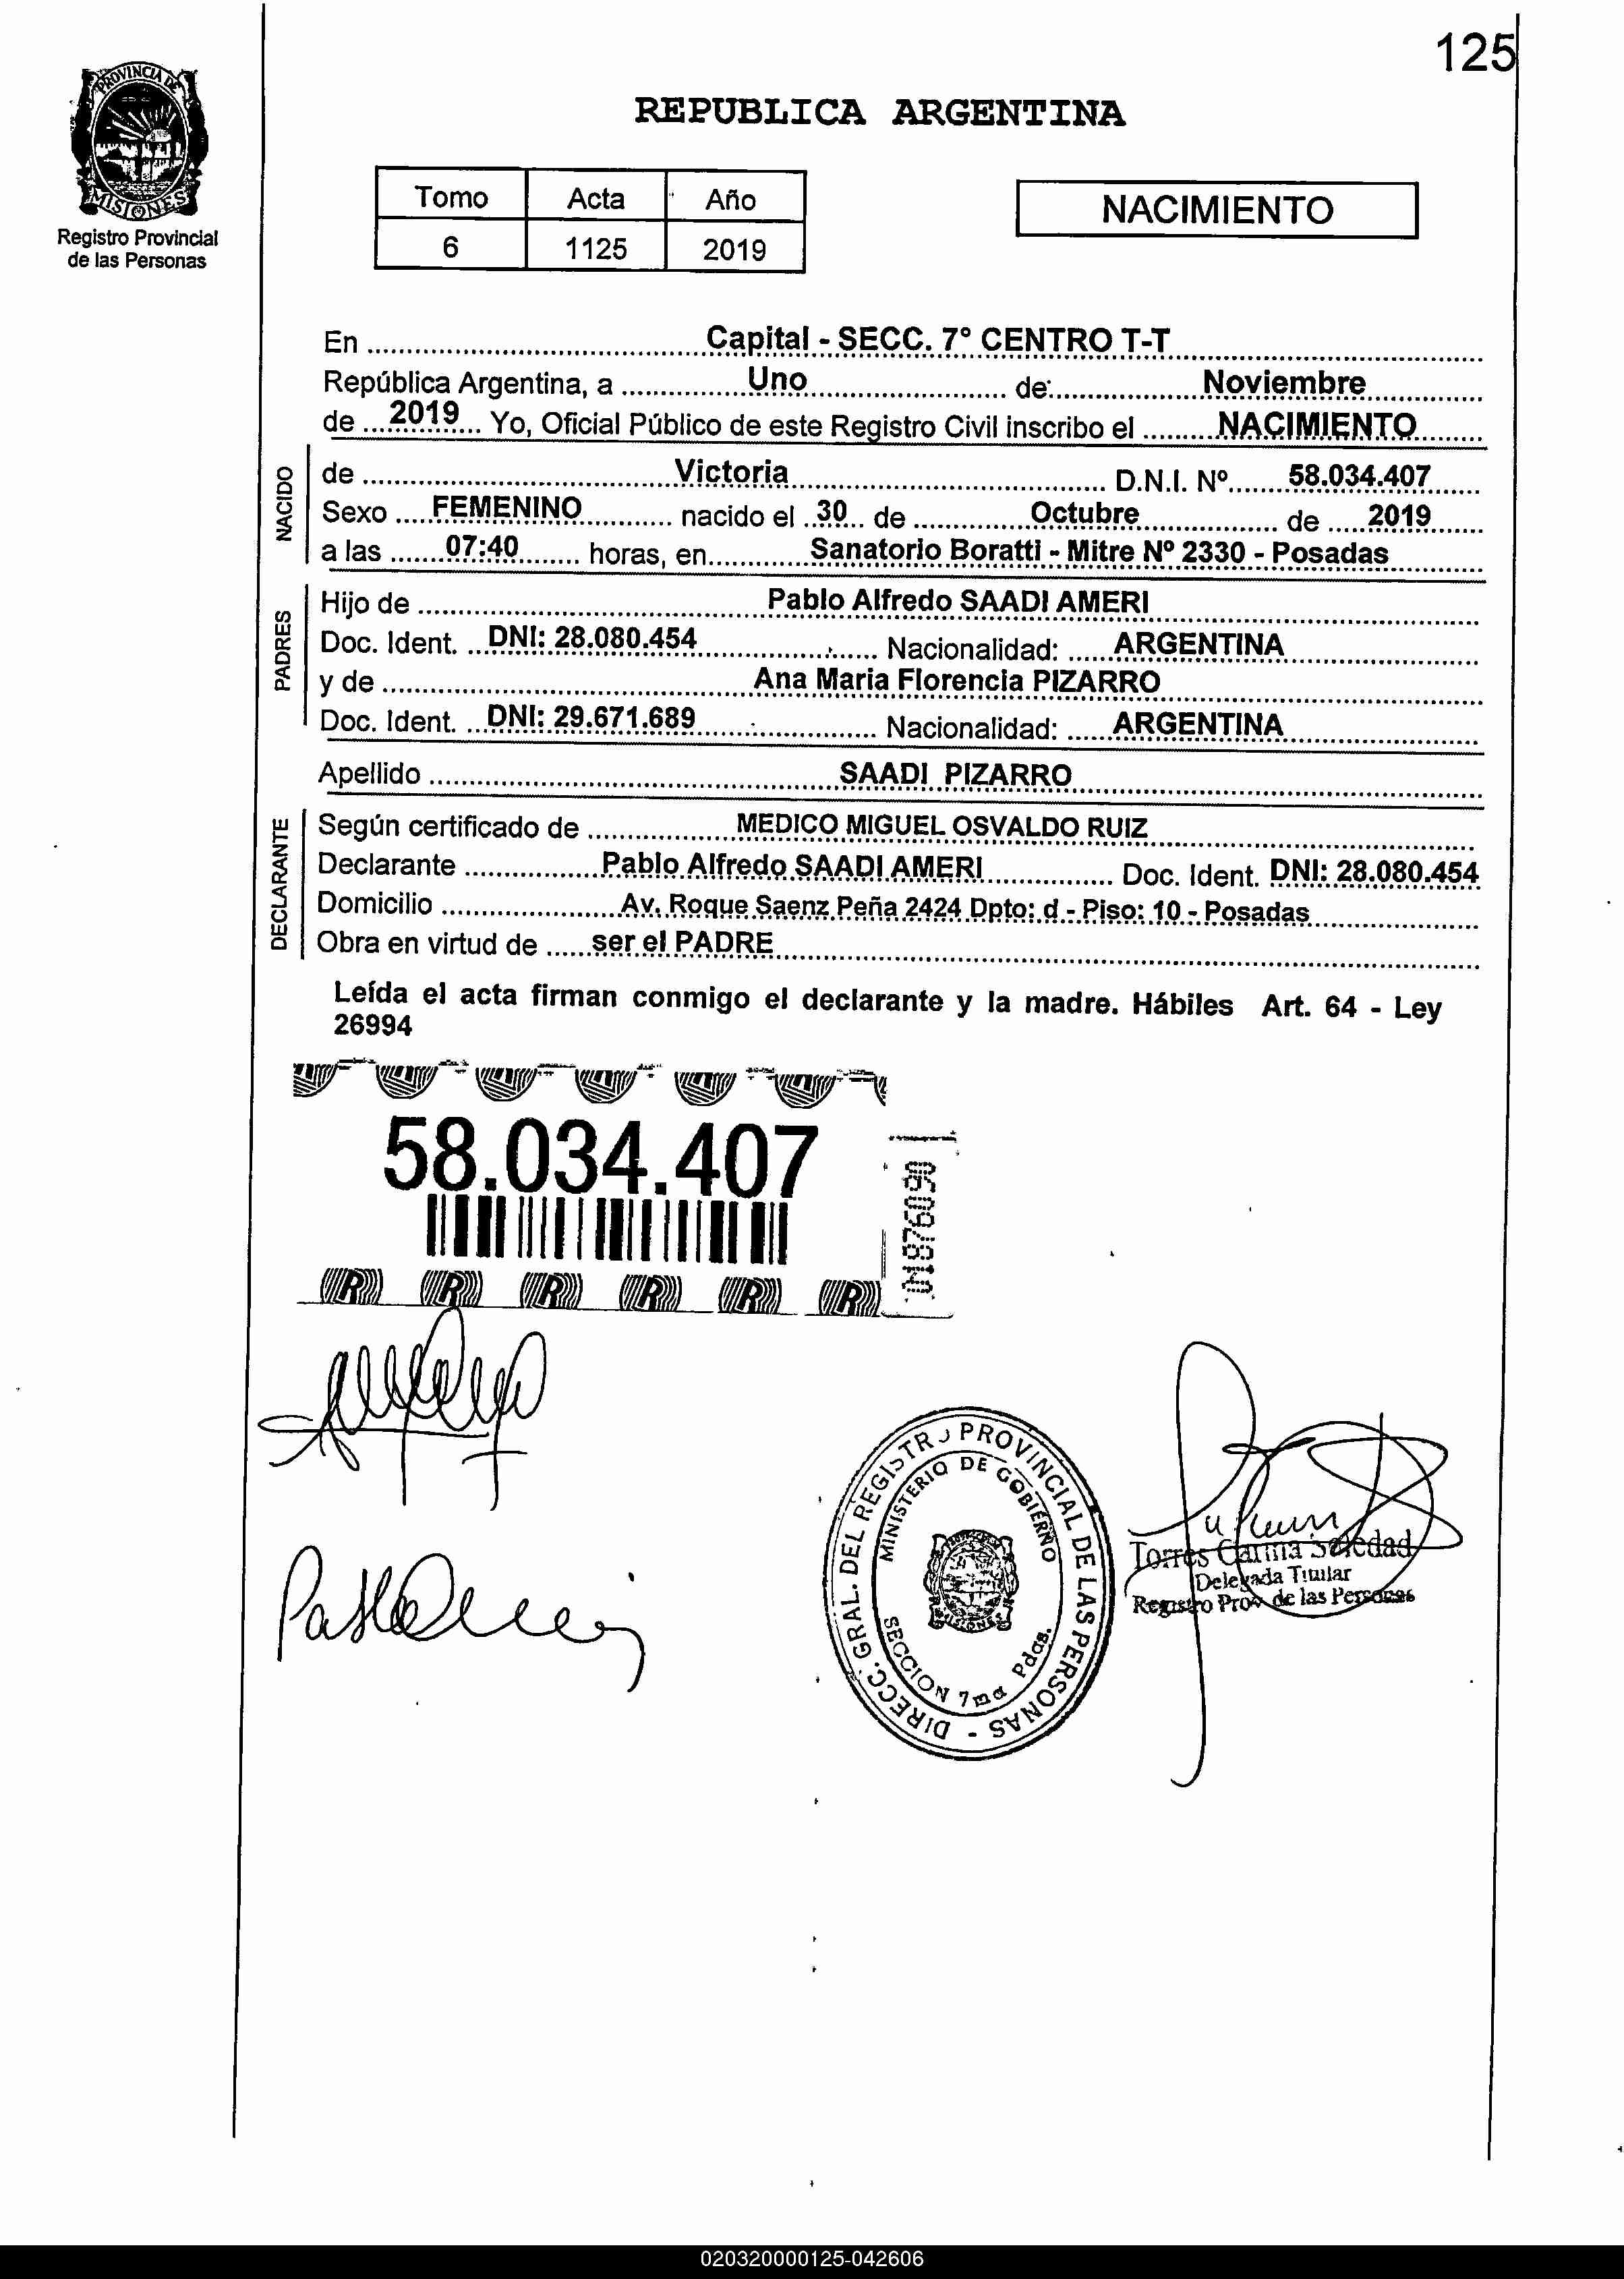 125
PROVINCIA DE
MISIONES
Registro Provincial
de las Personas
REPUBLICA ARGENTINA
Tomo Acta Año
6 1125 2019
NACIMIENTO
En Capital - SECC. 7º CENTRO T-T
República Argentina, a Uno de: Noviembre
de 2019 Yo, Oficial Público de este Registro Civil inscribo el NACIMIENTO
NACIDO
de Victoria D.N.I. Nº 58.034.407
Sexo FEMENINO nacido el 30 de Octubre de 2019
a las 07:40 horas, en Sanatorio Boratti - Mitre Nº 2330 - Posadas
PADRES
Hijo de Pablo Alfredo SAADI AMERI
Doc. Ident. DNI: 28.080.454 Nacionalidad: ARGENTINA
y de Ana Maria Florencia PIZARRO
Doc. Ident. DNI: 29.671.689 Nacionalidad: ARGENTINA
Apellido SAADI PIZARRO
DECLARANTE
Según certificado de MEDICO MIGUEL OSVALDO RUIZ
Declarante Pablo Alfredo SAADI AMERI Doc. Ident. DNI: 28.080.454
Domicilio Av. Roque Saenz Peña 2424 Dpto: d - Piso: 10 - Posadas
Obra en virtud de ser el PADRE
Leída el acta firman conmigo el declarante y la madre. Hábiles Art. 64 - Ley
26994
58.034.407
01876090
R R R R R R
DIRECC. GRAL. DEL REGISTRO PROVINCIAL DE LAS PERSONAS -
MINISTERIO DE GOBIERNO
SECCION 7ma Pdas.
Torres Carina Soledad
Delegada Titular
Registro Prov. de las Personas
020320000125-042606